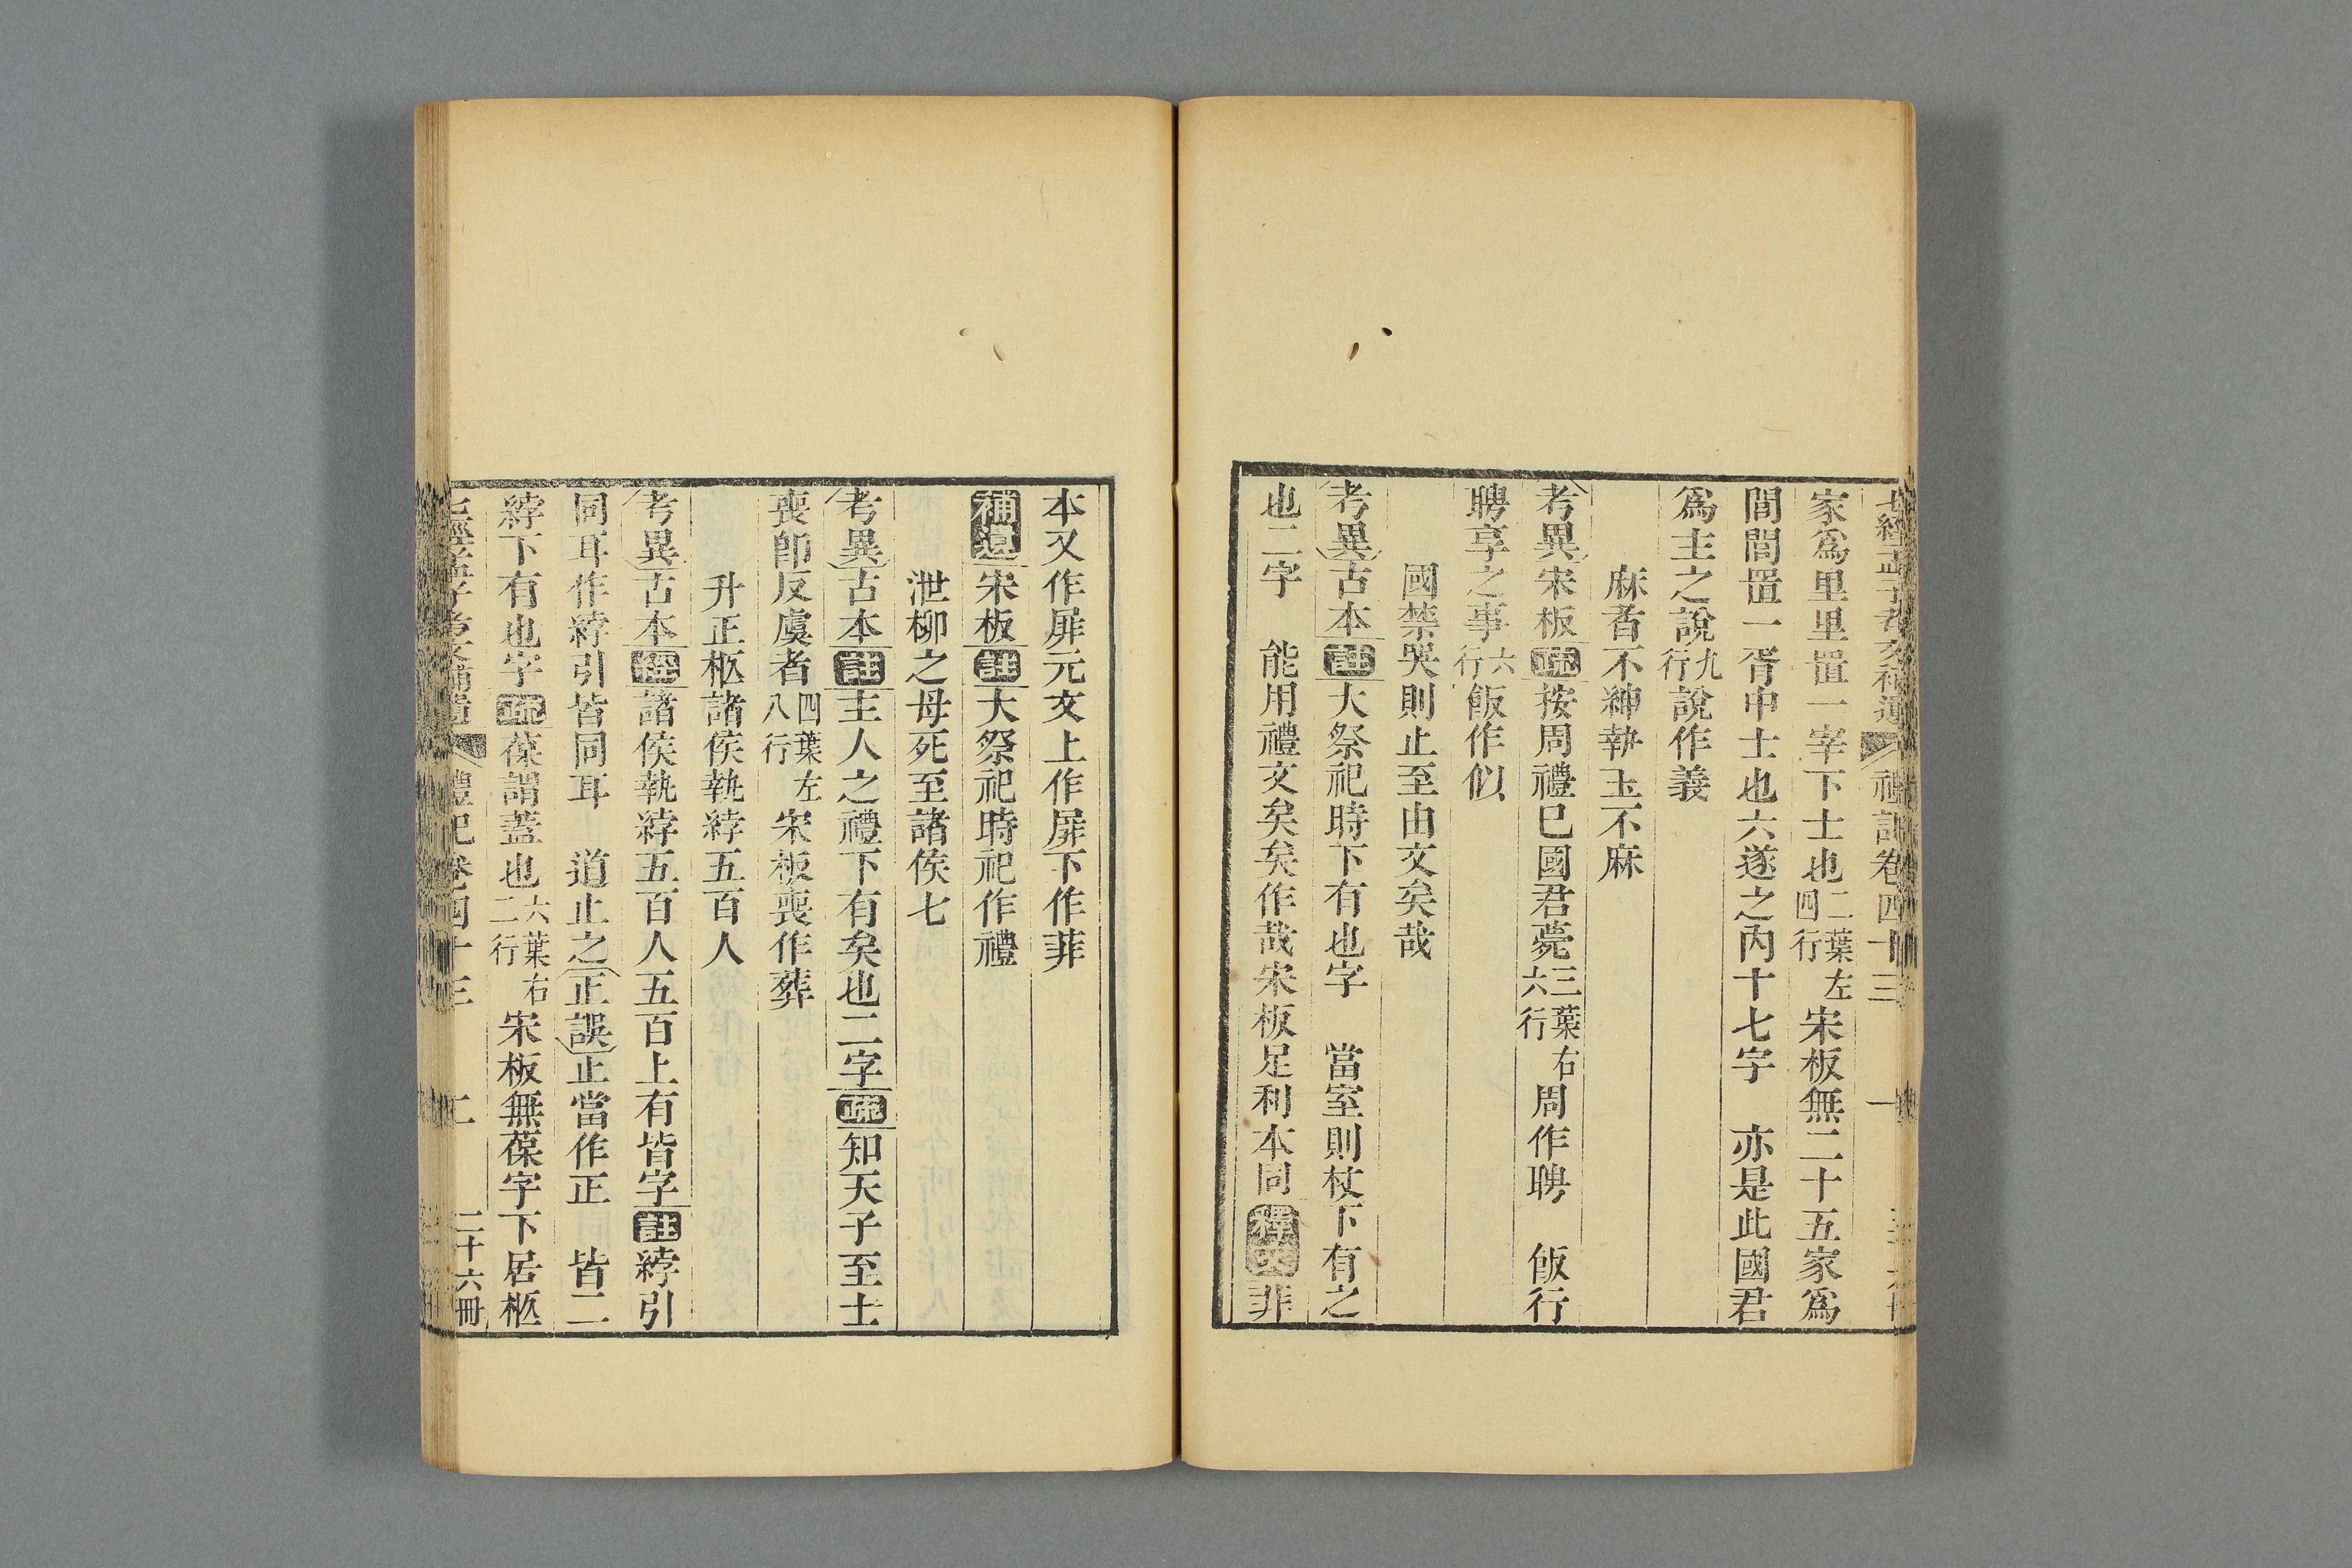 七經孟子考文補遺 禮記卷四十三 一
家爲里里置一宰下士也二葉左四行宋板無二十五家爲
閭閭置一胥中士也六遂之內十七字 亦是此國君
爲主之說九行說作義
麻者不紳執玉不麻
考異宋板疏按周禮巳國君薨三葉右六行周作聘 飯行
聘享之事六行飯作似
國禁哭則止至由文矣哉
考異古本註大祭祀時下有也字 當室則杖下有之
也二字 能用禮文矣矣作哉宋板足利本同釋文菲
本又作屝元文上作屝下作菲
補遺宋板註大祭祀時祀作禮
泄柳之母死至諸侯七
考異古本註主人之禮下有矣也二字疏知天子至士
喪卽反虞者四葉左八行宋板喪作葬
升正柩諸侯執綍五百人
考異古本經諸侯執綍五百人五百上有皆字註綍引
同耳作綍引皆同耳 道止之正誤正當作正 皆二
綍下有也字疏葆謂蓋也六葉右二行宋板無葆字下居柩
七經孟子考文補遺 禮記卷四十三 二 二十六冊